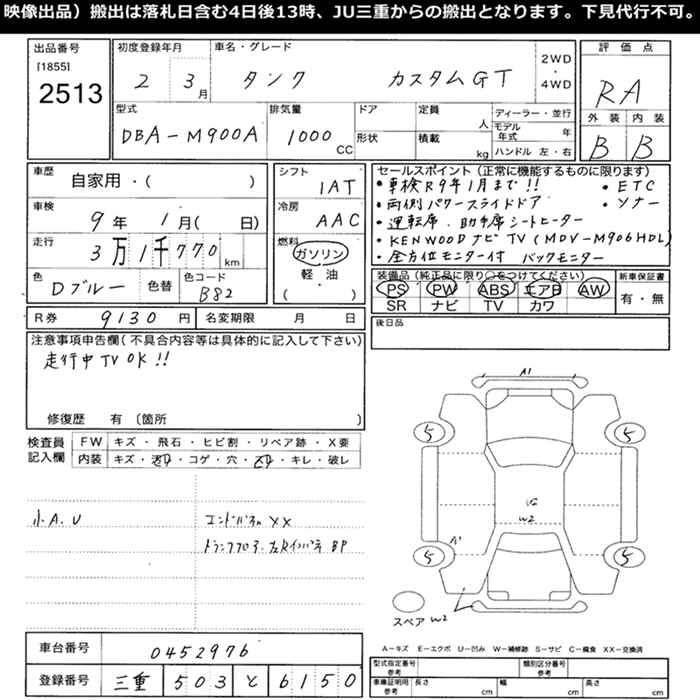 映像出品）搬出は落札日含む4日後13時、JU三重からの搬出となります。下見代行不可。
出品番号 初度登録年月 車名・グレード 評価点
[1855] 2WD・4WD
2513 2 3月 タンク カスタムGT RA
型式 排気量 ドア 定員 ディーラー・並行 外装 内装
人 モデル年式 年
DBA-M900A 1000CC 形状 積載 kg ハンドル 左・右 B B
車歴 シフト セールスポイント（正常に機能するものに限ります）
自家用・( ) 1AT ・車検R9年1月まで!! ・ETC
車検 冷房 ・両側パワースライドドア ・ソナー
9年 1月( 日) AAC ・運転席、助手席シートヒーター
走行 燃料 ・KENWOODナビTV(MDV-M906HDL)
3万1千770km ガソリン ・全方位モニター付 バックモニター
色 色替 色コード 軽・油 装備品（純正品に限り○をつけてください） 新車保証書
Dブルー B82 ( ) PS PW ABS エアB AW 有・無
SR ナビ TV カワ
R券 9130円 名変期限 月 日 後日品
注意事項申告欄（不具合内容等は具体的に記入して下さい）
走行中TV OK!!
修復歴 有〔箇所 〕
検査員記入欄 FW キズ・飛石・ヒビ割・リペア跡・X要
内装 キズ・汚れ・コゲ・穴・キレ・破レ
A1
5 5
小A.U エンドパネルXX U2
W2
トランクフロア・左Rインパネ BP A1
5 5
スペア W2
A－キズ E－エクボ U－凹み W－補修跡 S－サビ C－腐食 XX－交換済
車台番号 0452976
型式指定番号 参考 類別区分番号 参考
登録番号 三重 503 と 6150
車庫証明用 参考 長さ cm 幅 cm 高さ cm